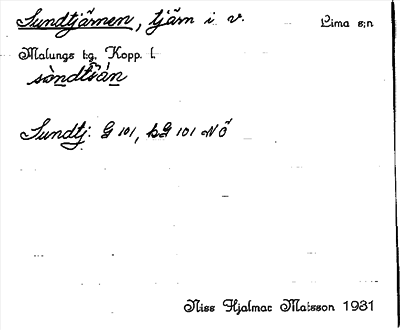 Sundtjärnen, tjärn i v. Lima s:n
Malungs t:g, Kopp. l.
sòndtsǻn
Sundtj. G 101, bG 101 NÖ
Niss Hjalmar Matsson 1931